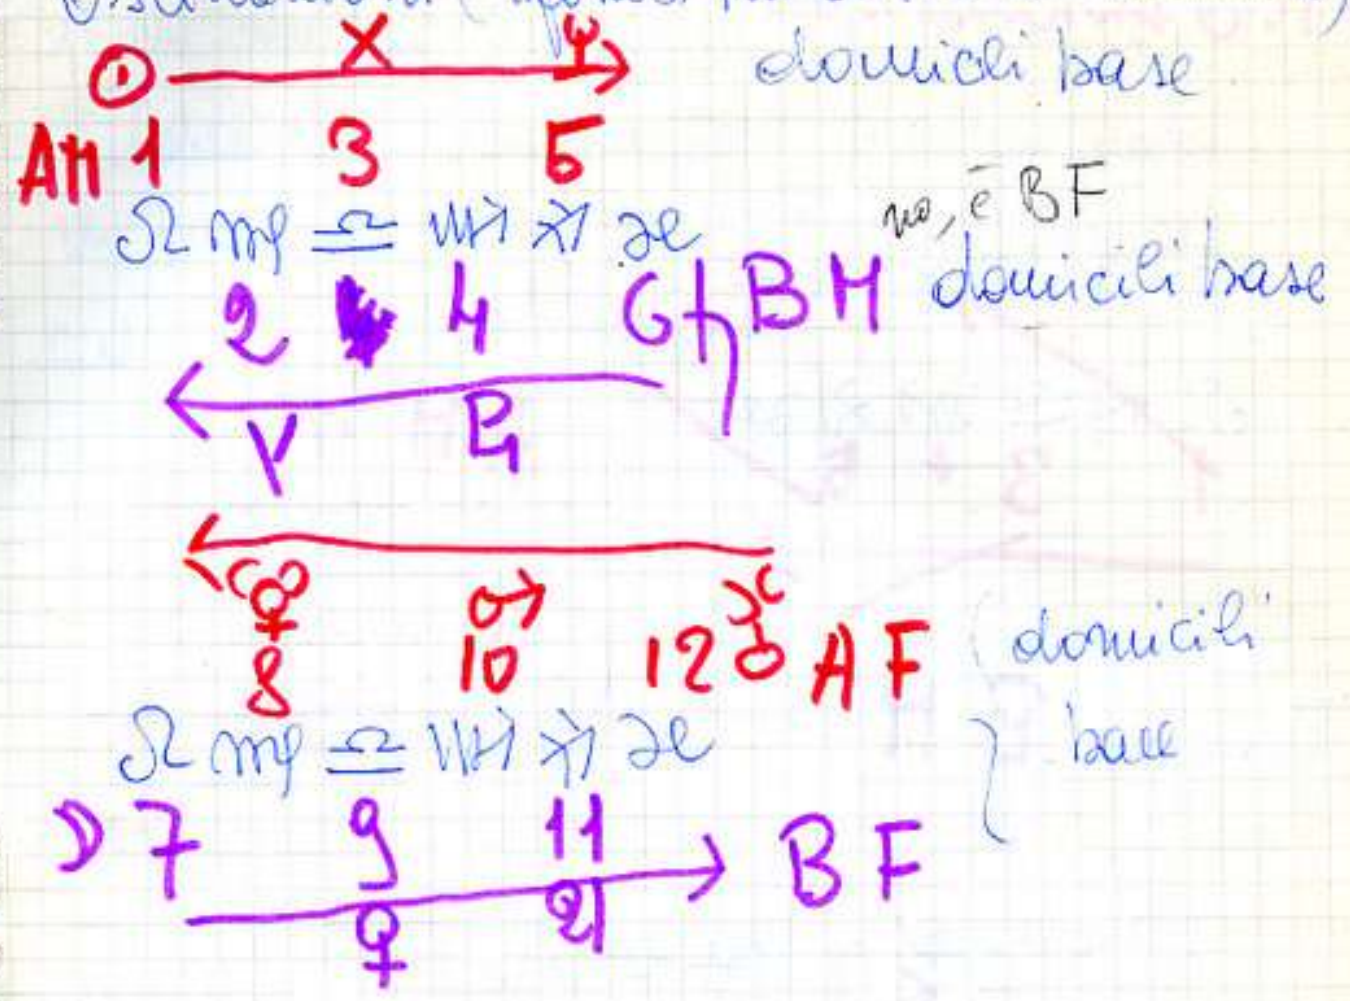 ☉ X ♆ domicili base
AM 1 3 5
no, è BF
♌ ♍ ♎ ♏ ♐ ♑
2 4 6 ♄ BM domicili base
Y P
☿ ♂ ♉
8 10 12 AF domicili
♌ ♍ ♎ ♏ ♐ ♑ base
☽ 7 9 11 BF
♀ ♃